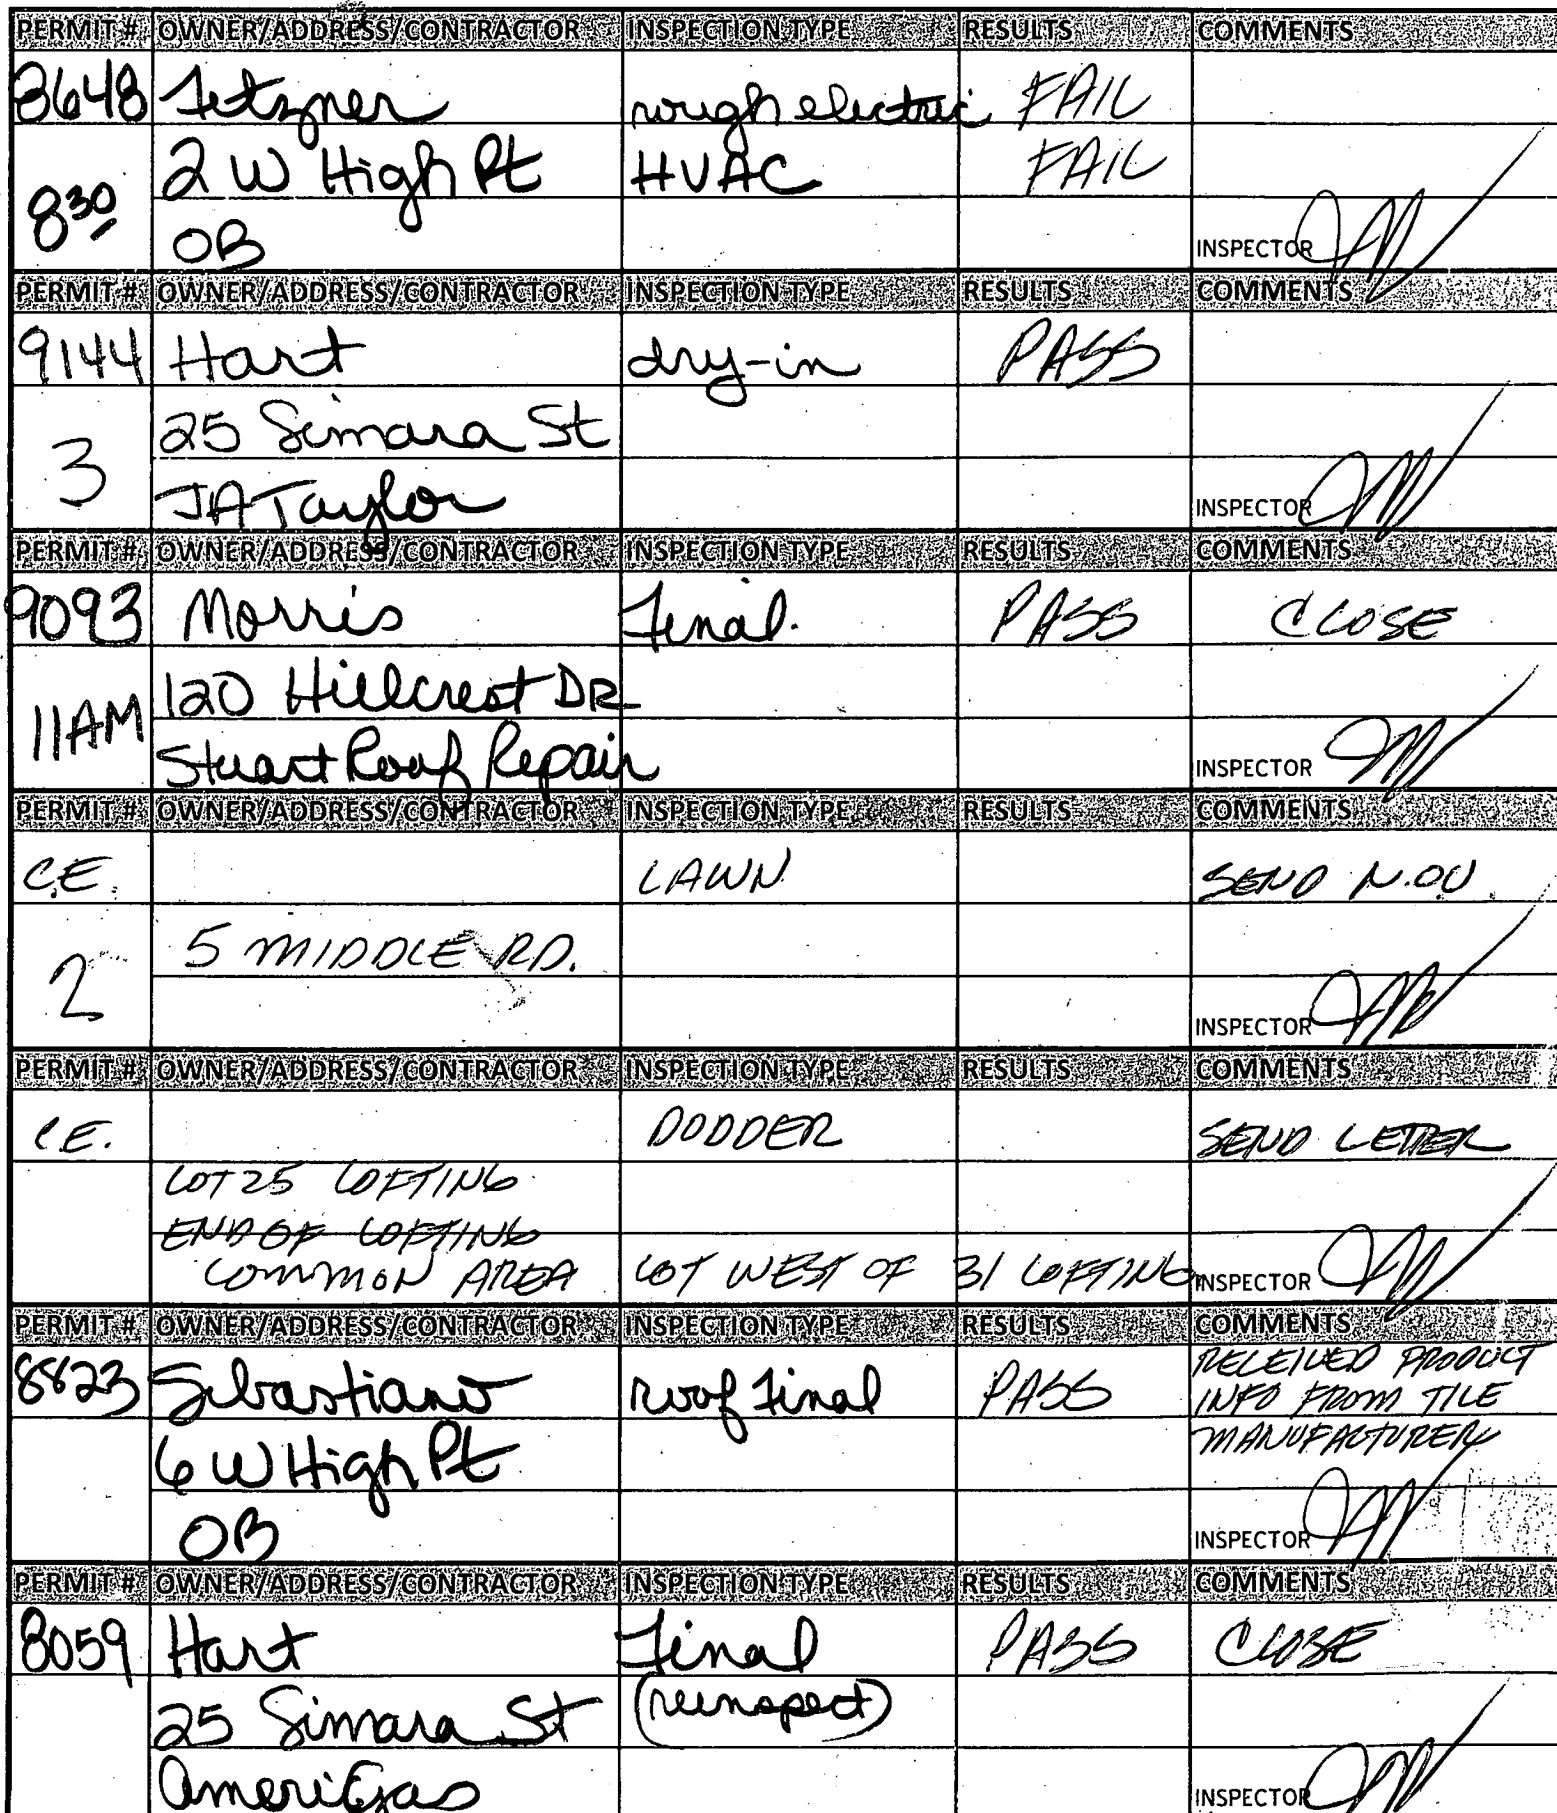 PERMIT # OWNER/ADDRESS/CONTRACTOR INSPECTION TYPE RESULTS COMMENTS
8648 Tetzner rough electric FAIL
2 W High Pt HVAC FAIL
8 30
OB INSPECTOR
PERMIT # OWNER/ADDRESS/CONTRACTOR INSPECTION TYPE RESULTS COMMENTS
9144 Hart dry-in PASS
25 Simara St
3
JA Taylor INSPECTOR
PERMIT # OWNER/ADDRESS/CONTRACTOR INSPECTION TYPE RESULTS COMMENTS
9093 Morris Final PASS CLOSE
120 Hillcrest DR
11AM
Stuart Roof Repair INSPECTOR
PERMIT # OWNER/ADDRESS/CONTRACTOR INSPECTION TYPE RESULTS COMMENTS
C.E. LAWN SEND N.OV
5 MIDDLE RD.
2
INSPECTOR
PERMIT # OWNER/ADDRESS/CONTRACTOR INSPECTION TYPE RESULTS COMMENTS
C.E. DODDER SEND LETTER
LOT 25 LOFTING
END OF LOFTING
COMMON AREA LOT WEST OF 31 LOFTING INSPECTOR
PERMIT # OWNER/ADDRESS/CONTRACTOR INSPECTION TYPE RESULTS COMMENTS
8823 Sebastiano roof Final PASS RECEIVED PRODUCT
INFO FROM TILE
6 W High Pt MANUFACTURER
OB INSPECTOR
PERMIT # OWNER/ADDRESS/CONTRACTOR INSPECTION TYPE RESULTS COMMENTS
8059 Hart Final PASS CLOSE
25 Simara St (reinspect)
AmeriGas INSPECTOR